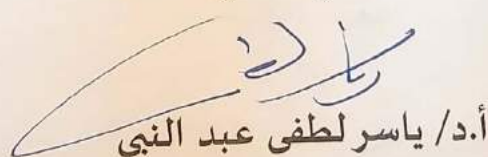 أ.د/ ياسر لطفى عبد النبى